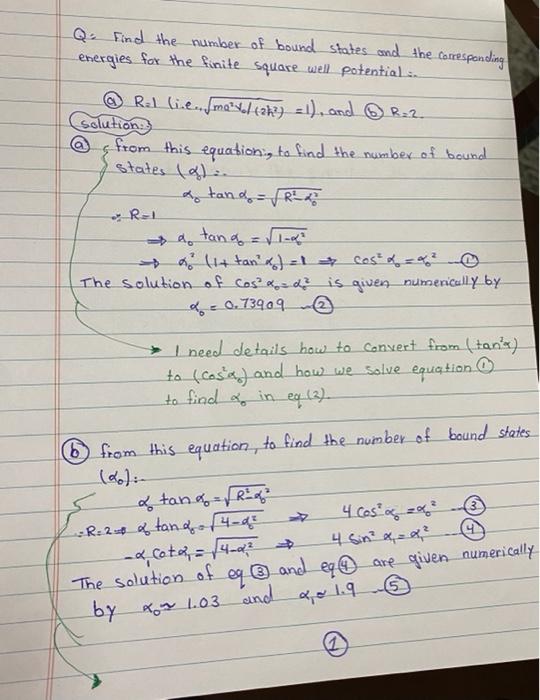 Q: Find the number of bound states and the corresponding
energies for the finite square well potential:-
ⓐ R=1 (i.e., √ma²V₀/(2ħ²) =1), and ⓑ R=2.
solution:
ⓐ from this equation, to find the number of bound
states (α₀):-
α₀ tan α₀ = √R²-α₀²
∵ R=1
⇒ α₀ tan α₀ = √1-α₀²
⇒ α₀² (1+ tan² α₀) = 1 ⇒ cos² α₀ = α₀² —①
The solution of cos² α₀ = α₀² is given numerically by
α₀ = 0.73909 —②
I need details how to convert from (tan²α)
to (cos²α₀) and how we solve equation ①
to find α₀ in eq (2).
ⓑ from this equation, to find the number of bound states
(α₀):-
α₀ tan α₀ = √R²-α₀²
∵ R=2 ⇒ α₀ tan α₀ = √4-α₀² ⇒ 4 cos² α₀ = α₀² —③
-α₁ cot α₁ = √4-α₁² ⇒ 4 sin² α₁ = α₁² —④
The solution of eq ③ and eq ④ are given numerically
by α₀ ≈ 1.03 and α₁ ≈ 1.9 —⑤
①